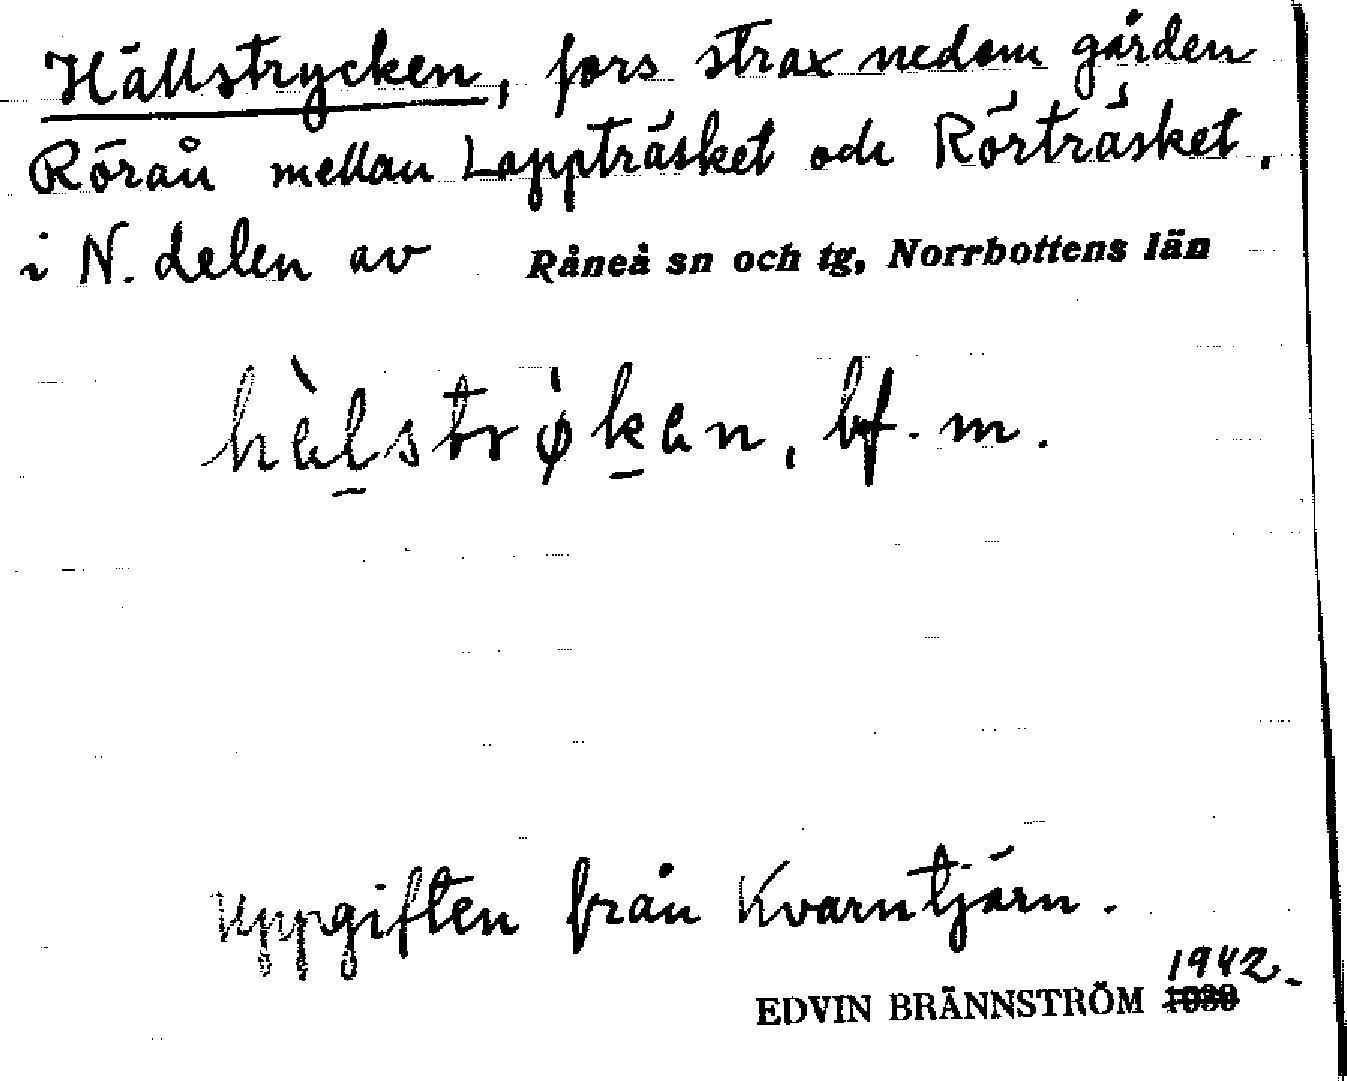 Hällstrycken, fors strax nedom gården
Röraån mellan Lappträsket och Rörträsket.
i N. delen av Råneå sn och tg, Norrbottens län
hàlstrøkan, bf. m.
Uppgiften från Kvarntjärn.
1942.
EDVIN BRÄNNSTRÖM